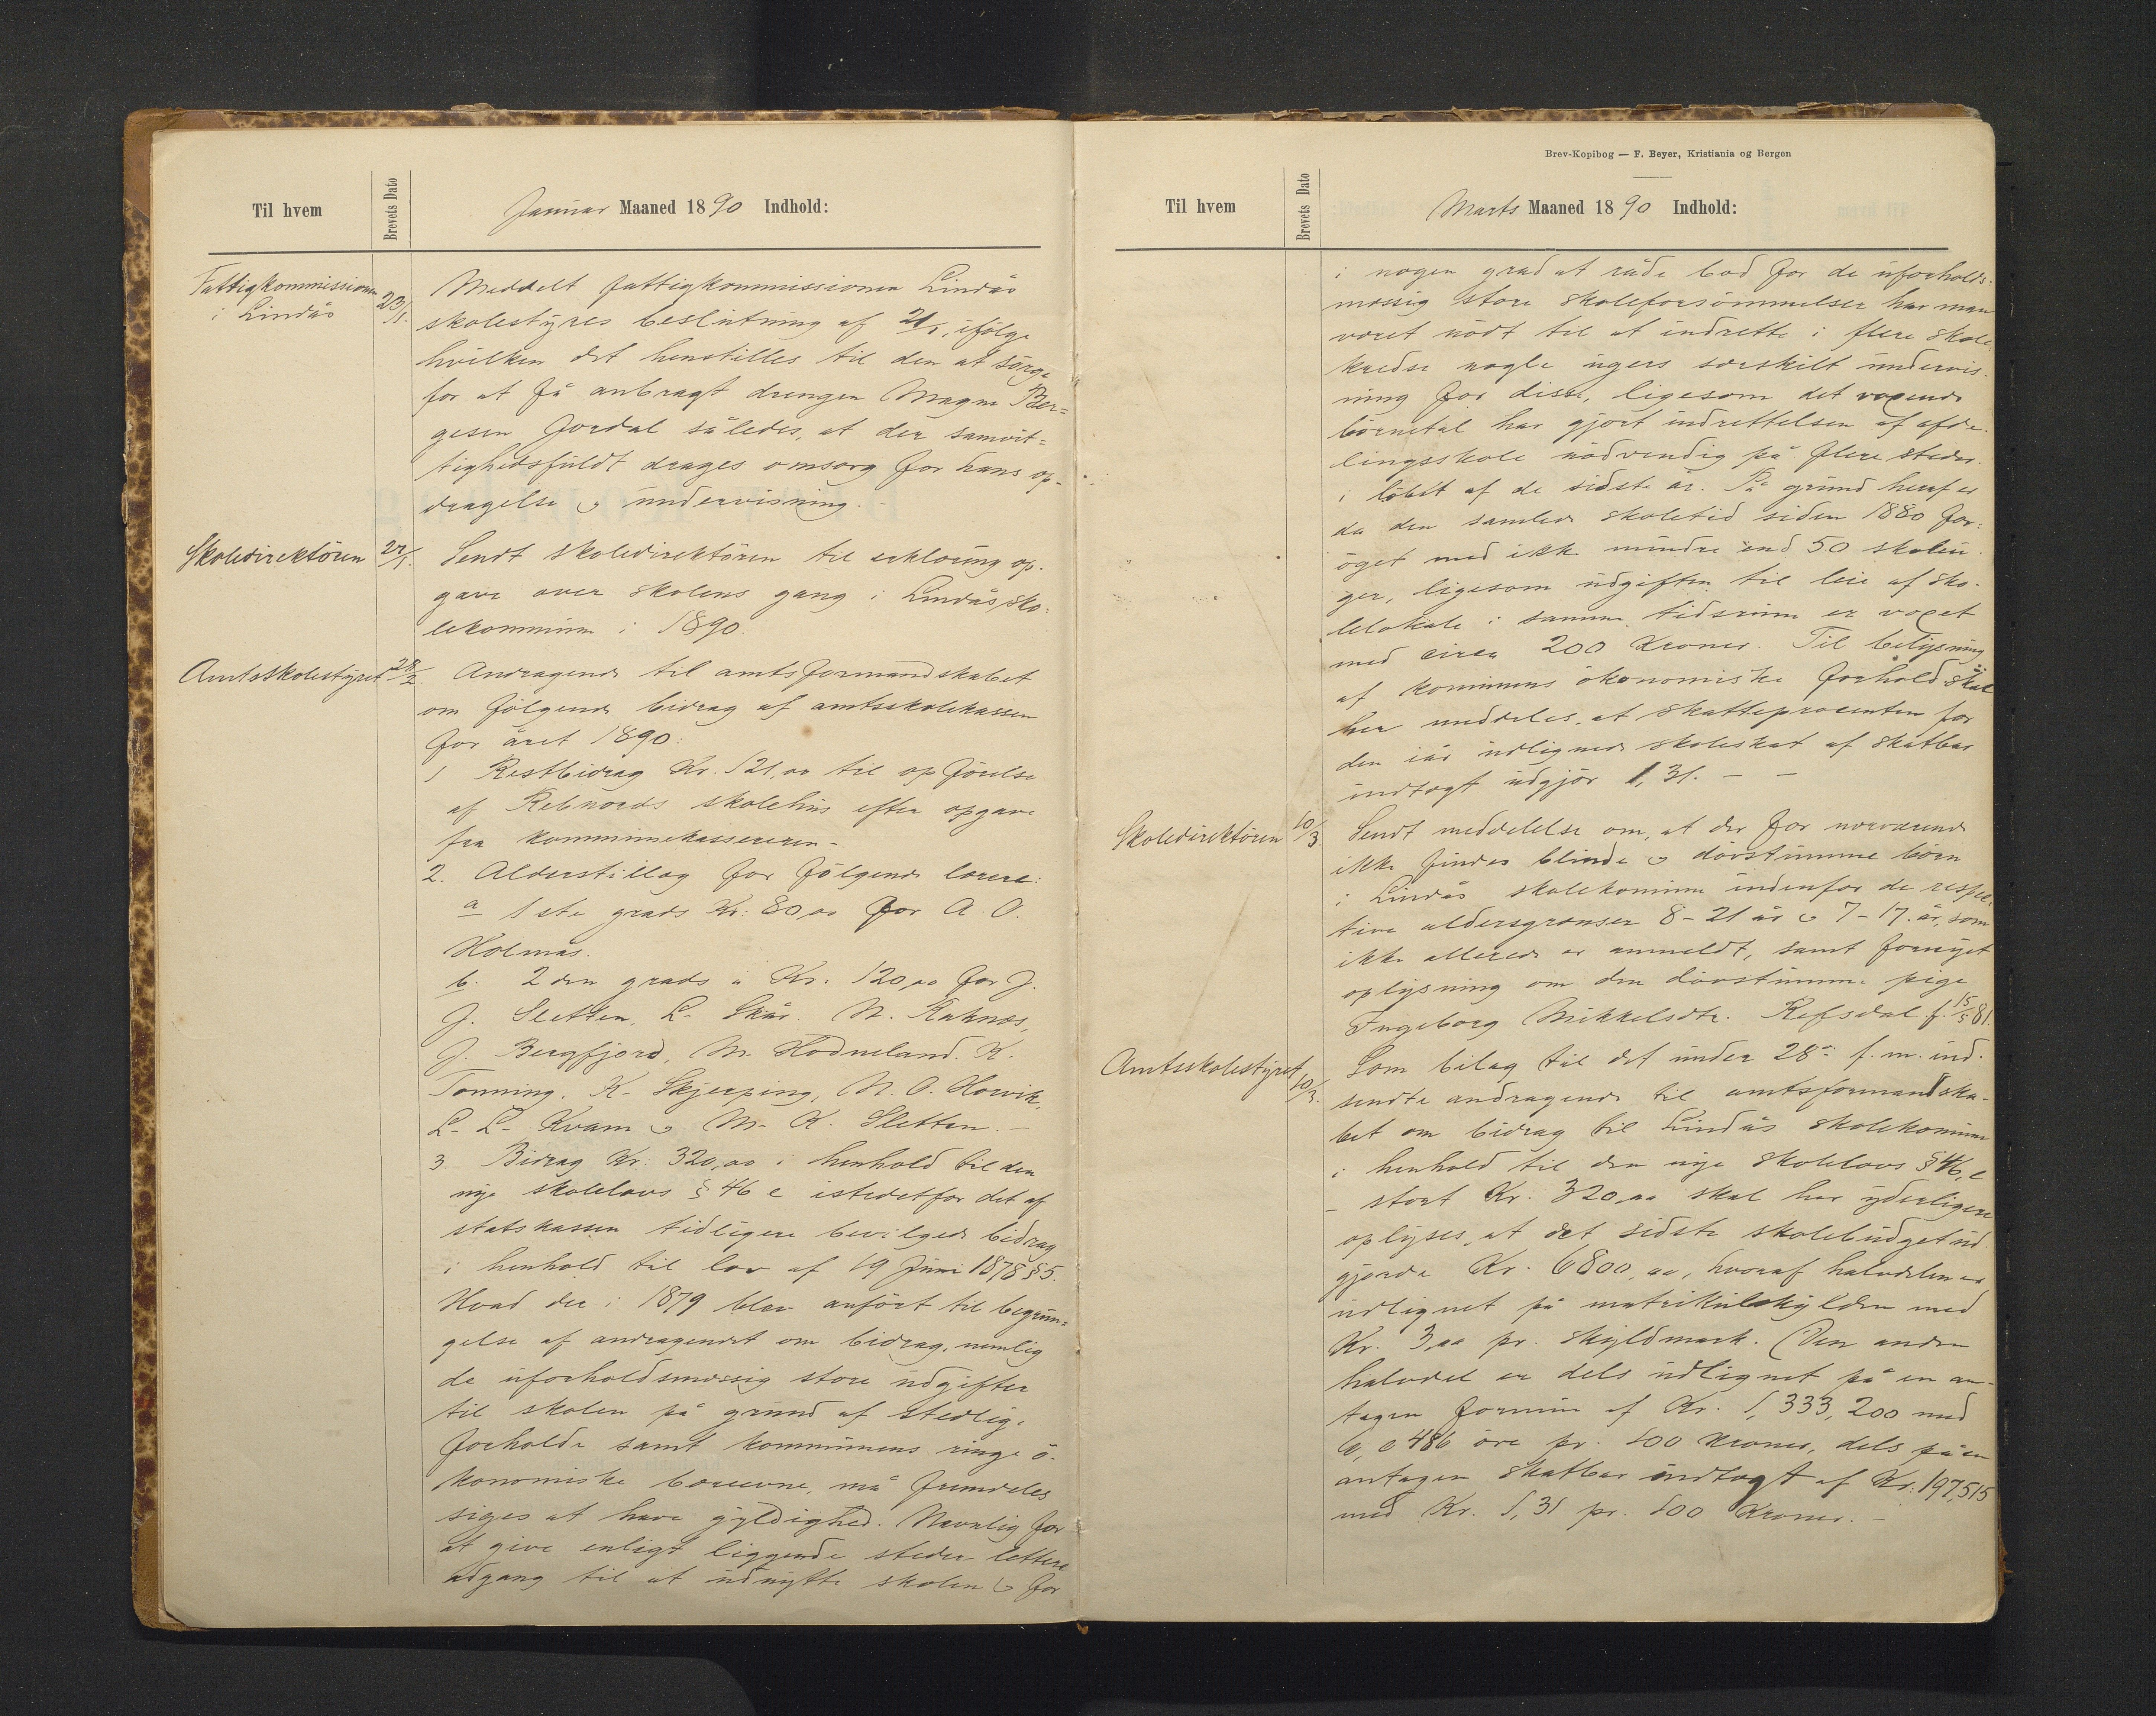 Til hvem
Brevets Dato
Januar Maaned 1890 Indhold:
Fattigkommissionen
i Lindås
23/1.
Meddelt fattigkommissionen Lindås
skolestyres beslutning af 21/1, ifølge
hvilken det henstilles til den at sörge
for at få anbragt drengen Magne Bør=
gesen Fordal således, at der samvit=
tighedsfuldt drages omsorg for hans op-
dragelse & undervisning. -
Skoledirektören
27/1.
Sendt skoledirektören til erklæring op-
gave over skolens gang i Lindås sko=
lekommune i 1890.
Amtsskolestyret
28/2.
Andragende til amtsformandskabet
om følgende bidrag af amtsskolekassen
for året 1890:
1 Restbidrag Kr. 121,00 til opförelse
af Rebnords skolehus efter opgave
fra kommunekassereren -
2. Alderstillæg for følgende lærere:
a 1ste grads Kr: 80,00 for A. O.
Holmås.
b. 2den grads à Kr. 120,00 for J.
J. Sletten, L. Skår. N. Raknæs,
J. Bergfjord, M. Hodneland. K.
Tonning. K. Skjerping, N. O. Hovik,
L. L. Kvam & M. K. Sletten. -
3 Bidrag Kr: 320,00 i henhold til den
nye skolelovs § 46 e istedetfor det af
statskassen tidligere bevilgede bidrag
i henhold til lov af 19 Juni 1878 § 5.
Hvad der i 1879 blev anfört til begrun=
gelse af andragendet om bidrag, nemlig
de uforholdsmæssig store udgifter
til skolen på grund af stedlige
forholde samt kommunens ringe ö-
konomiske bæreevne, må fremdeles
siges at have gyldighed. Navnlig for
at give enligt liggende steder lettere
adgang til at udnytte skolen & for
Brev-Kopibog — F. Beyer, Kristiania og Bergen
Til hvem
Brevets Dato
Marts Maaned 1890 Indhold:
i nogen grad at råde bod for de uforholds=
mæssig store skoleforsömmelser har man
været nödt til at indrette i flere skole-
kredse nogle ugers særskilt undervis-
ning for disse, ligesom det voxende
börnetal har gjort indrettelsen af afde-
lingsskole nödvendig på flere steder
i löbet af de sidste år. På grund heraf er
da den samlede skoletid siden 1880 for=
öget med ikke mindre end 50 skoleu-
ger, ligesom udgiften til leie af sko-
lelokale i samme tidsrum er voxet
med circa 200 Kroner. Til belysning
af kommunens ökonomiske forhold skal
her meddeles, at skatteprocenten for
den iår udlignede skoleskat af skatbar
indtægt udgjör 1,31. - -
Skoledirektören
10/3.
Sendt meddelelse om, at der for nærværende
ikke findes blinde & dövstumme börn
i Lindås skolekommune indenfor de respec-
tive aldersgrænser 8-21 år & 7-17. år, som
ikke allerede er anmeldt, samt fornyet
oplysning om den dövstumme pige
Ingeborg Mikkelsdtr. Refsdal f. 15/5 81.
Amtsskolestyret
10/3.
Som bilag til det under 28de f. m. ind-
sendte andragende til amtsformandska-
bet om bidrag til Lindås skolekommune
i henhold til den nye skolelovs § 46, e
- stort Kr. 320,00 skal her yderligere
oplyses, at det sidste skolebudget ud-
gjorde Kr. 6800,00, hvoraf halvdelen er
udlignet på matrikulskylden med
Kr. 3,00 pr. skyldmark. (Den anden
halvdel er dels udlignet på en an-
tagen formue af Kr. 1,333,200 med
0,0486 öre pr. 100 Kroner, dels på en
antagen skatbar indtægt af Kr. 197,515
med Kr. 1,31 pr. 100 Kroner. -